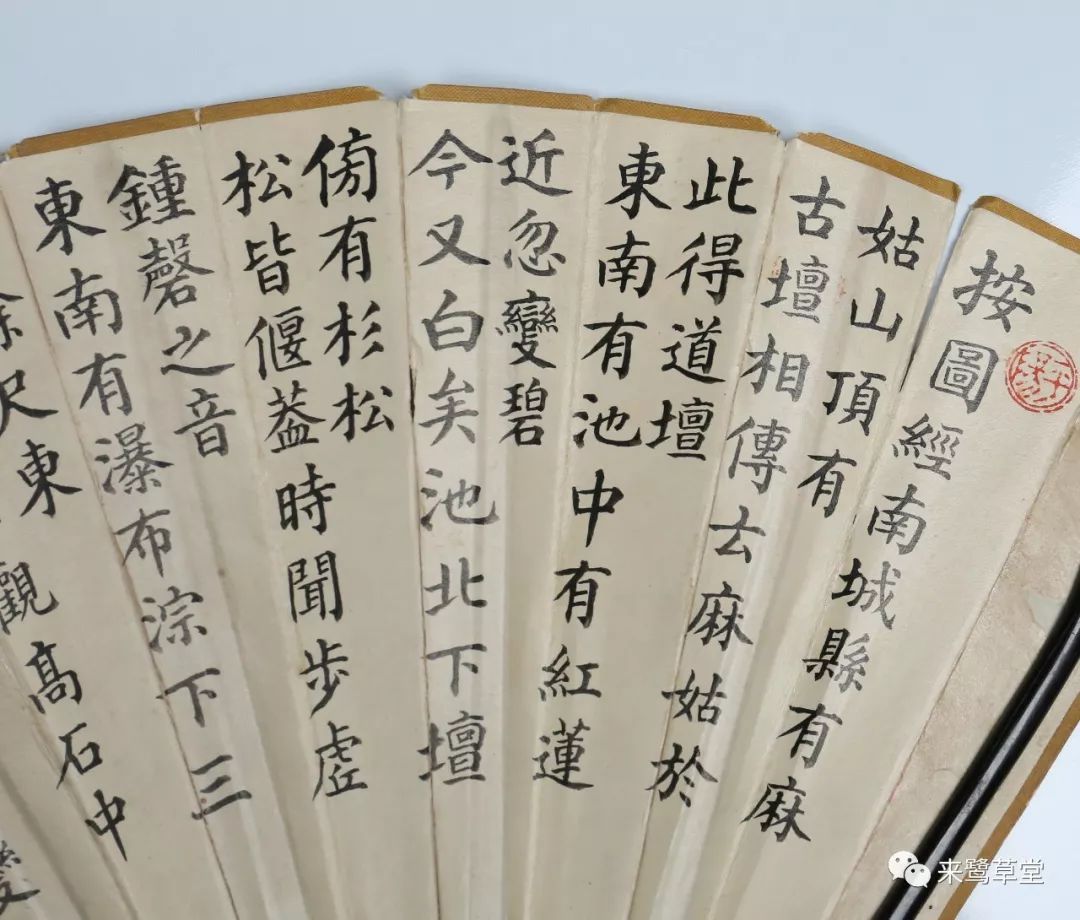 按圖經南城縣有麻
姑山頂有
古壇相傳云麻姑於
此得道壇
東南有池中有紅蓮
近忽變碧
今又白矣池北下壇
傍有杉松
松皆偃葢時聞步虛
鍾磬之音
東南有瀑布淙下三
餘尺東
觀高石中
来鹭草堂